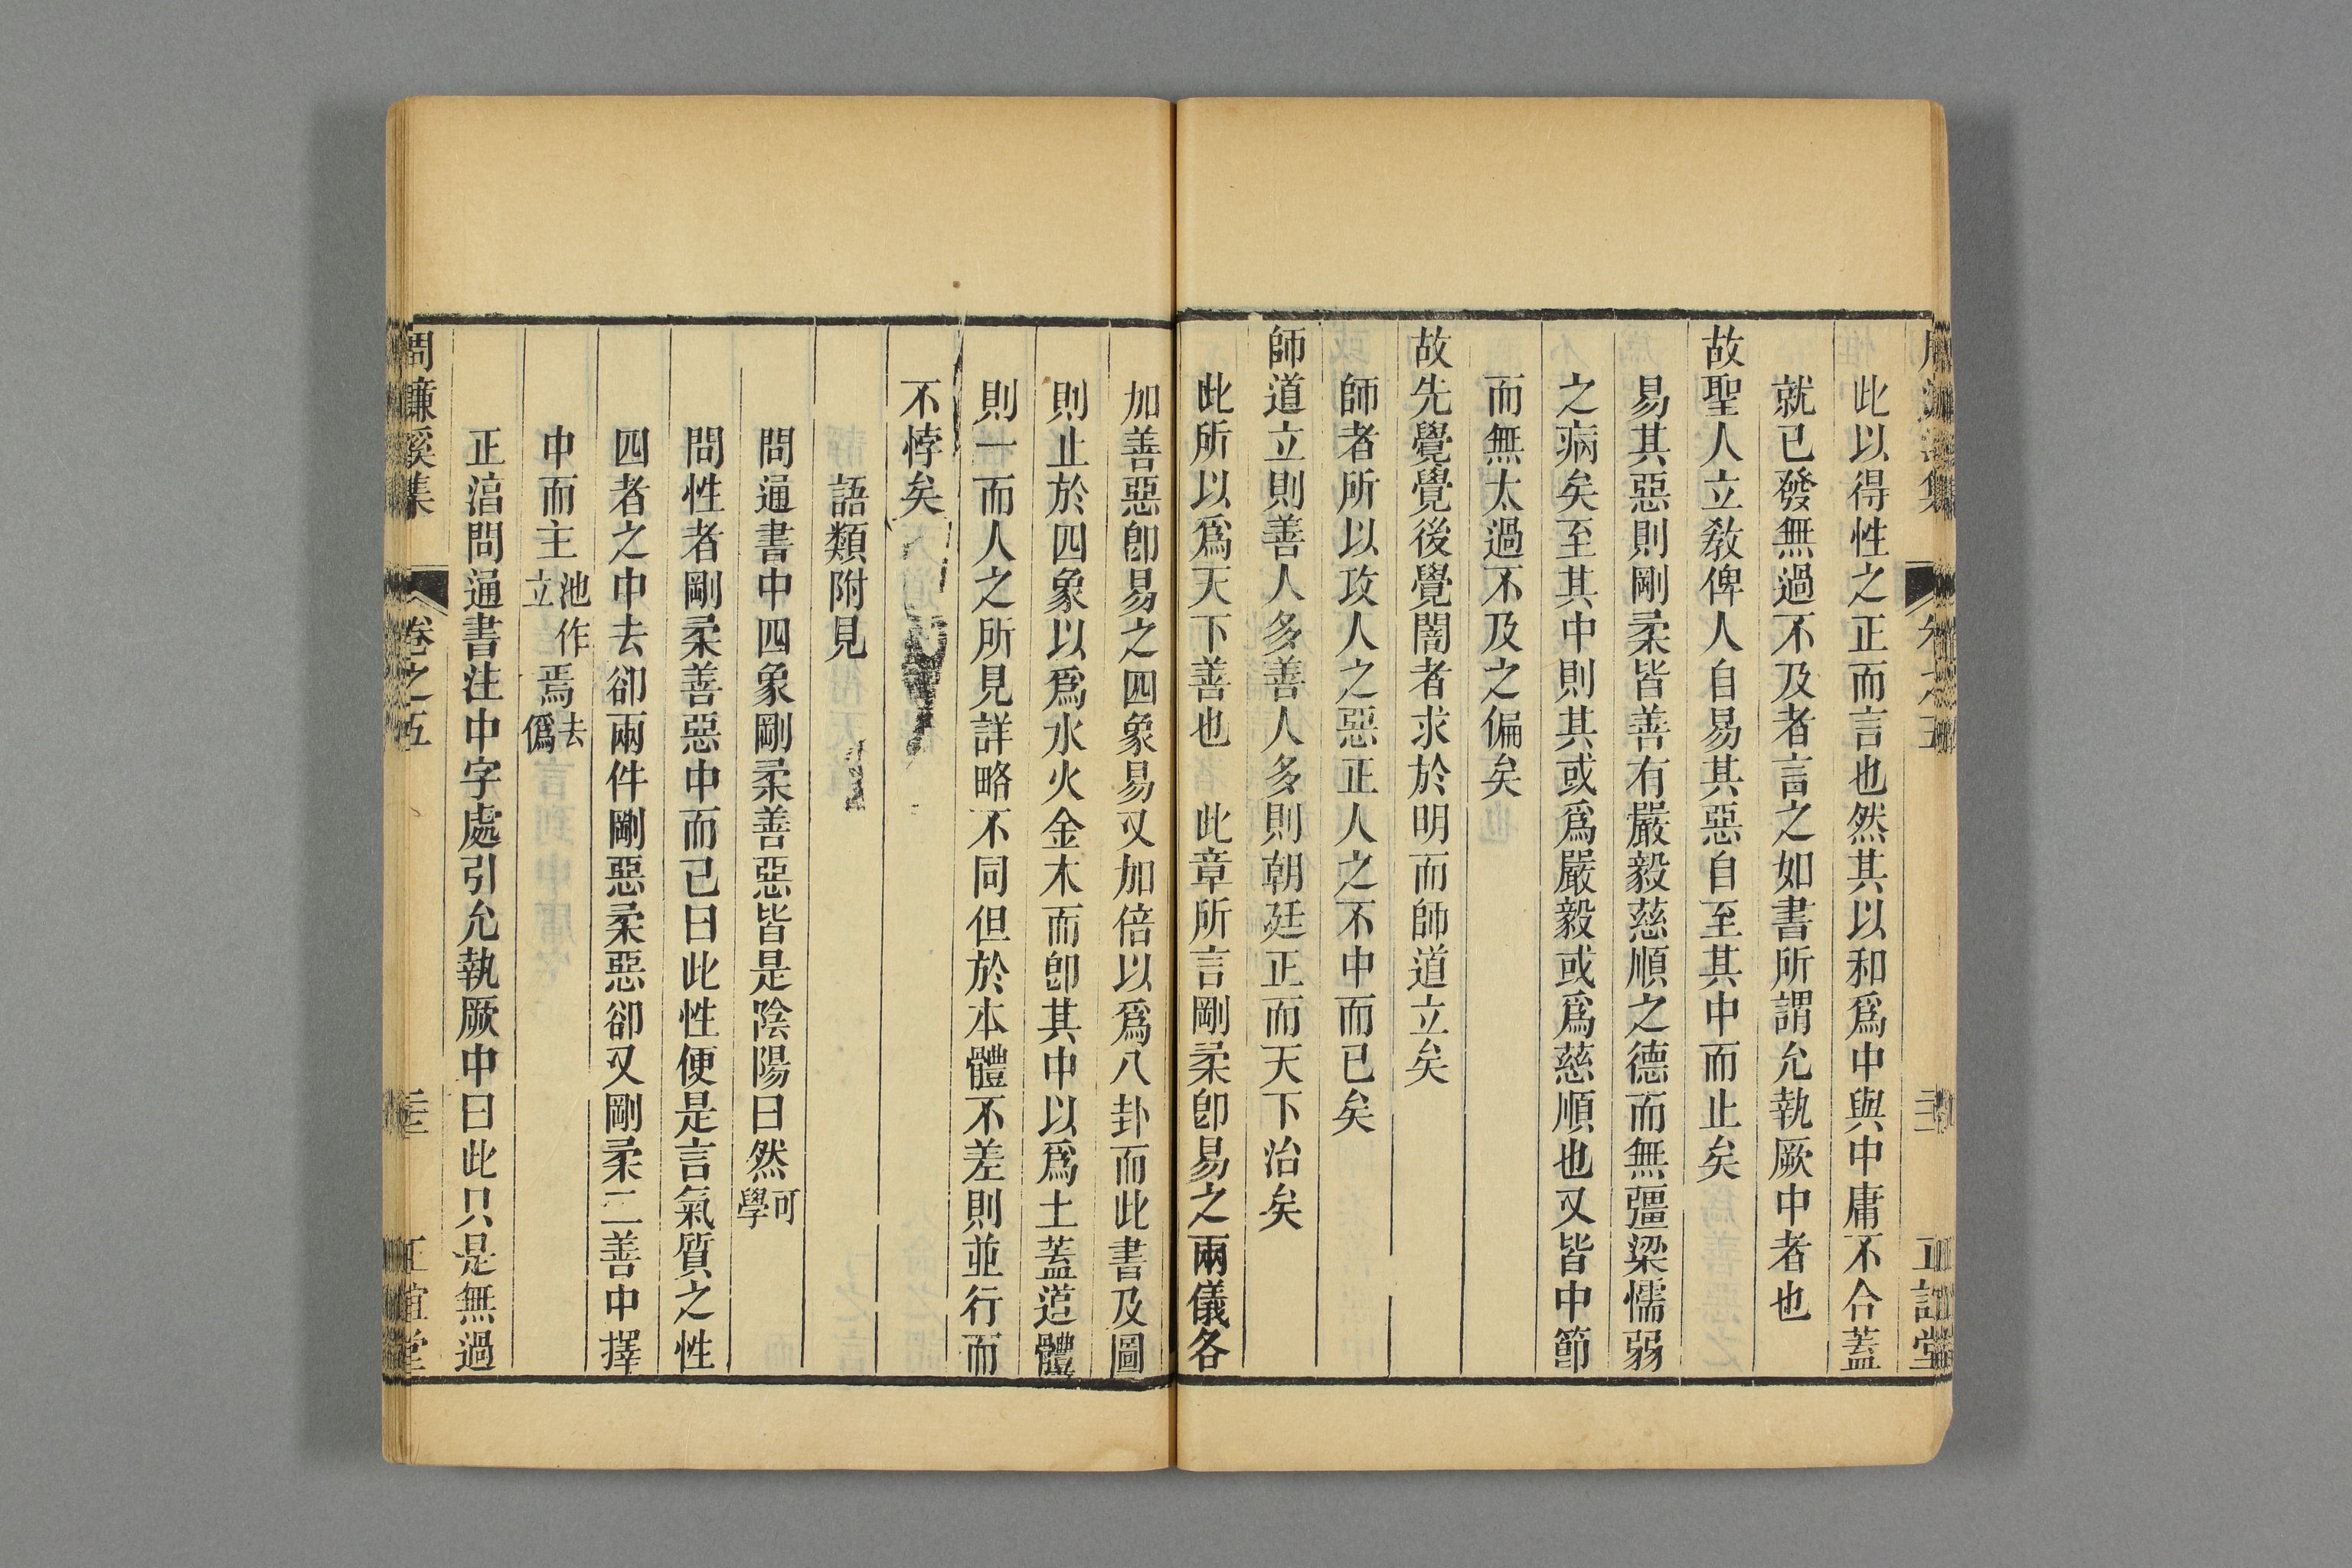 此以得性之正而言也然其以和爲中與中庸不合蓋
就已發無過不及者言之如書所謂允執厥中者也
故聖人立教俾人自易其惡自至其中而止矣
易其惡則剛柔皆善有嚴毅慈順之德而無彊梁懦弱
之病矣至其中則其或爲嚴毅或爲慈順也又皆中節
而無太過不及之偏矣
故先覺覺後覺闇者求於明而師道立矣
師者所以攻人之惡正人之不中而已矣
師道立則善人多善人多則朝廷正而天下治矣
此所以爲天下善也　此章所言剛柔卽易之兩儀各
加善惡卽易之四象易又加倍以爲八卦而此書及圖
則止於四象以爲水火金木而卽其中以爲土蓋道體
則一而人之所見詳略不同但於本體不差則並行而
不悖矣
語類附見
問通書中四象剛柔善惡皆是陰陽曰然可學
問性者剛柔善惡中而已曰此性便是言氣質之性
四者之中去卻兩件剛惡柔惡卻又剛柔二善中擇
中而主池作立焉去僞
正淯問通書注中字處引允執厥中曰此只是無過
周濂溪集　卷之五